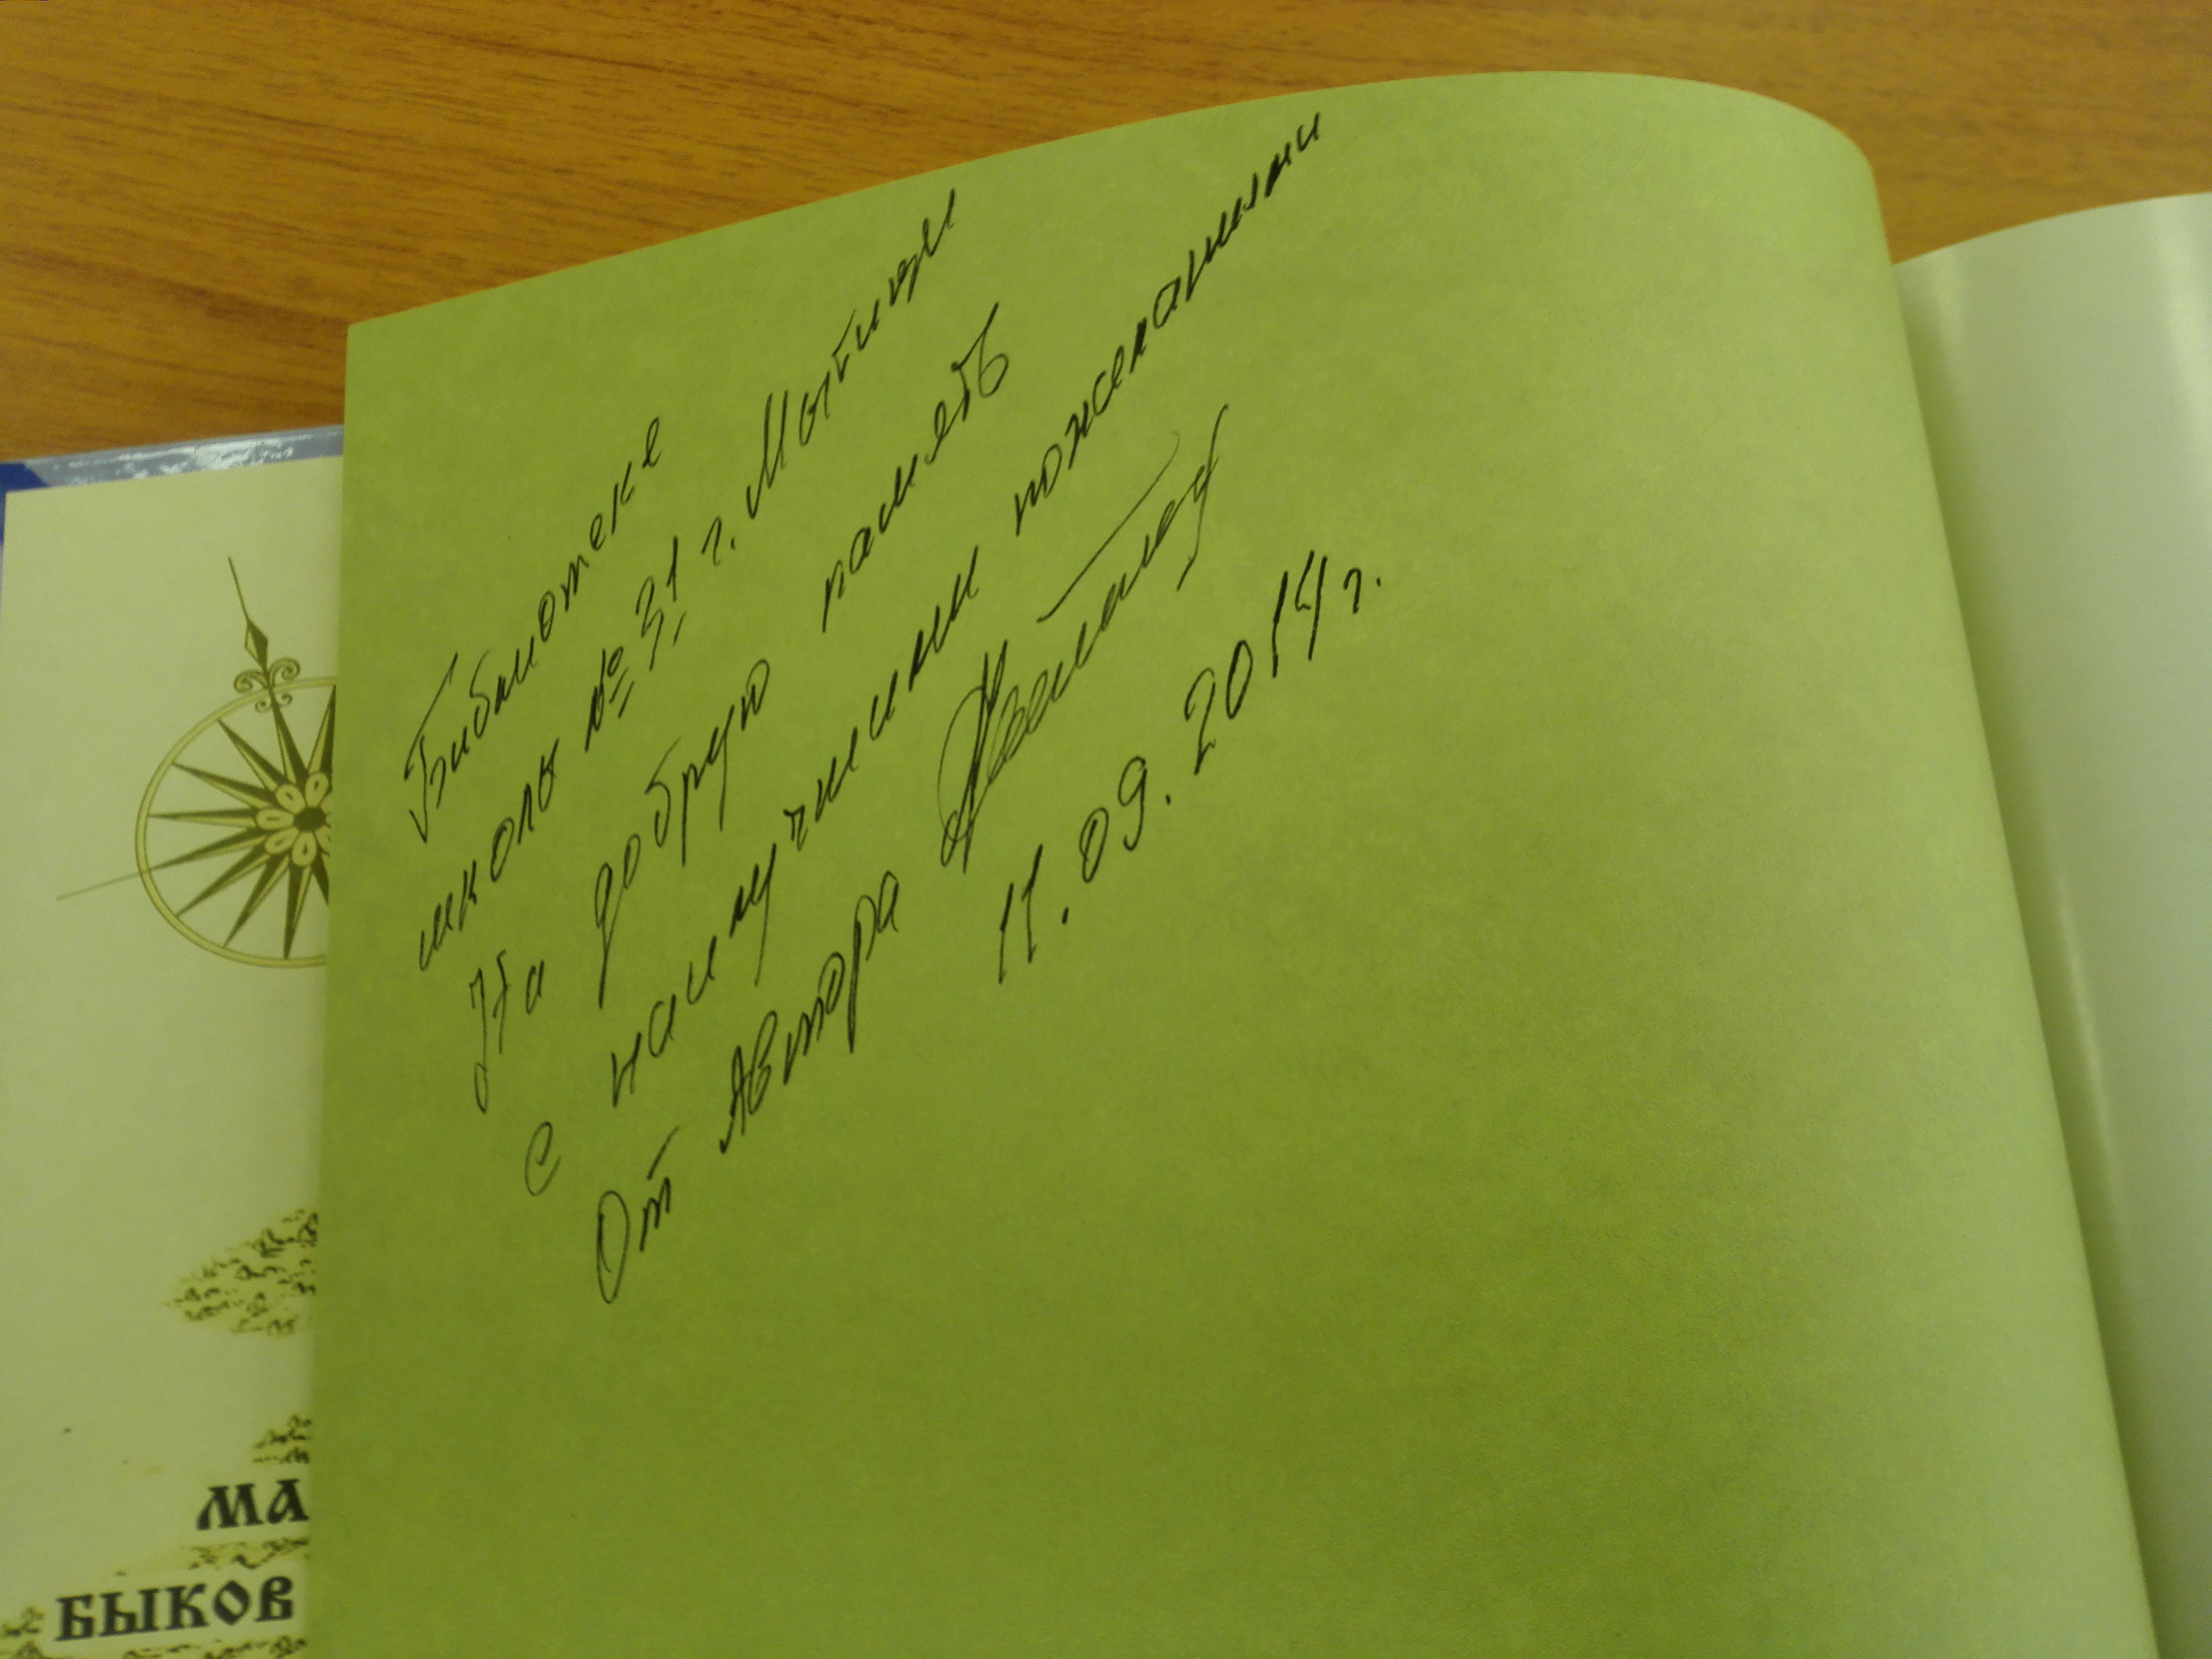 Библиотеке
школы № 21 г. Мытищи
На добрую память
с наилучшими пожеланиями
От Автора
11.09.2014 г.
МА
БЫКОВ